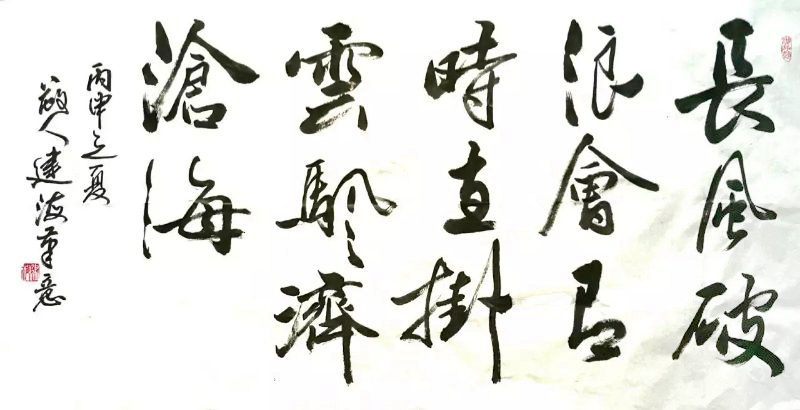 長風破
浪會有
時直掛
雲颿濟
滄海
丙申之夏
人建海筆意